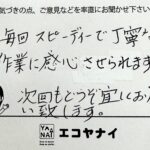 気づきの点、ご意見などを率直にお聞かせ下さい
毎回スピーディーで丁寧な
作業に感心させられます。
次回もどうぞ宜しくお願
い致します。
エコヤナイ